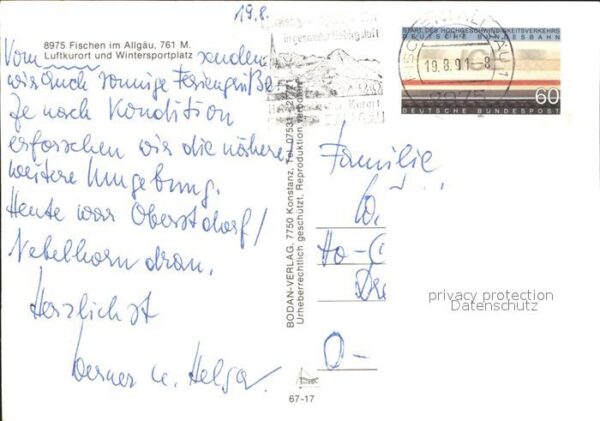 19.8.
8975 Fischen im Allgäu, 761 M.
Luftkurort und Wintersportplatz
Vom senden
wir Euch sonnige Feriengrüße
Je nach Kondition
erforschen wir die nähere
weitere Umgebung.
Heute war Oberstdorf/
Nebelhorn dran.
Herzlichst
Werner u. Helga
BODAN-VERLAG, 7750 Konstanz, Tel. 07531-22871
Urheberrechtlich geschützt. Reproduktion verboten
67-17
START DES HOCHGESCHWINDIGKEITSVERKEHRS
DEUTSCHE BUNDESBAHN
60
DEUTSCHE BUNDESPOST
19.8.91-8
8975
Familie
W.
Ho-
Dre
O-
privacy protection
Datenschutz